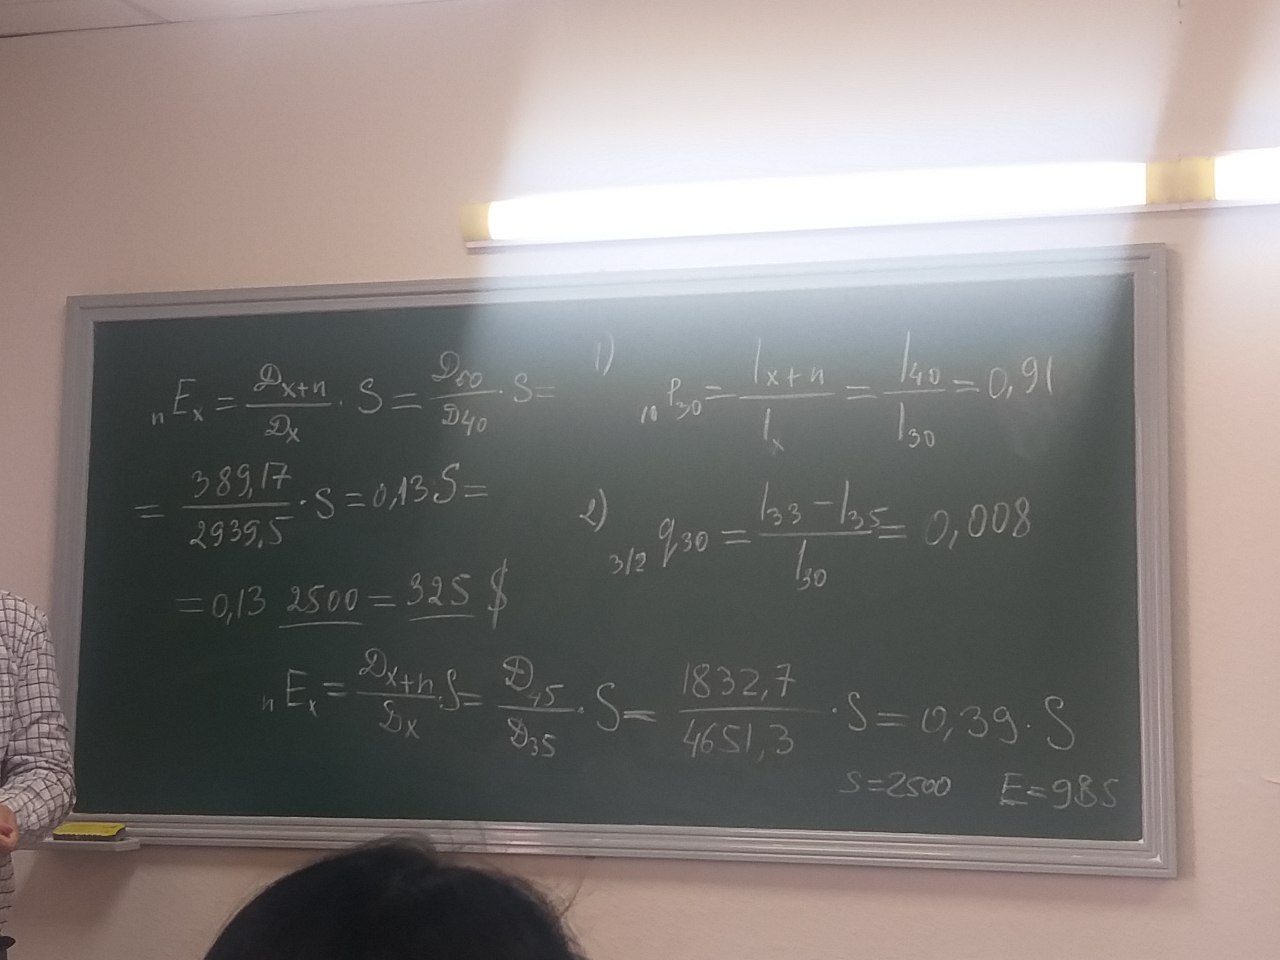 ₙEₓ = Dₓ₊ₙ/Dₓ · S = D₆₀/D₄₀ · S =
= 389,17/2939,5 · S = 0,13 · S =
= 0,13 2500 = 325 $
1) ₁₀p₃₀ = lₓ₊ₙ/lₓ = l₄₀/l₃₀ = 0,91
2) ₃/₂q₃₀ = (l₃₃ − l₃₅)/l₃₀ = 0,008
ₙEₓ = Dₓ₊ₙ/Dₓ · S = D₄₅/D₃₅ · S = 1832,7/4651,3 · S = 0,39 · S
S=2500 E=985